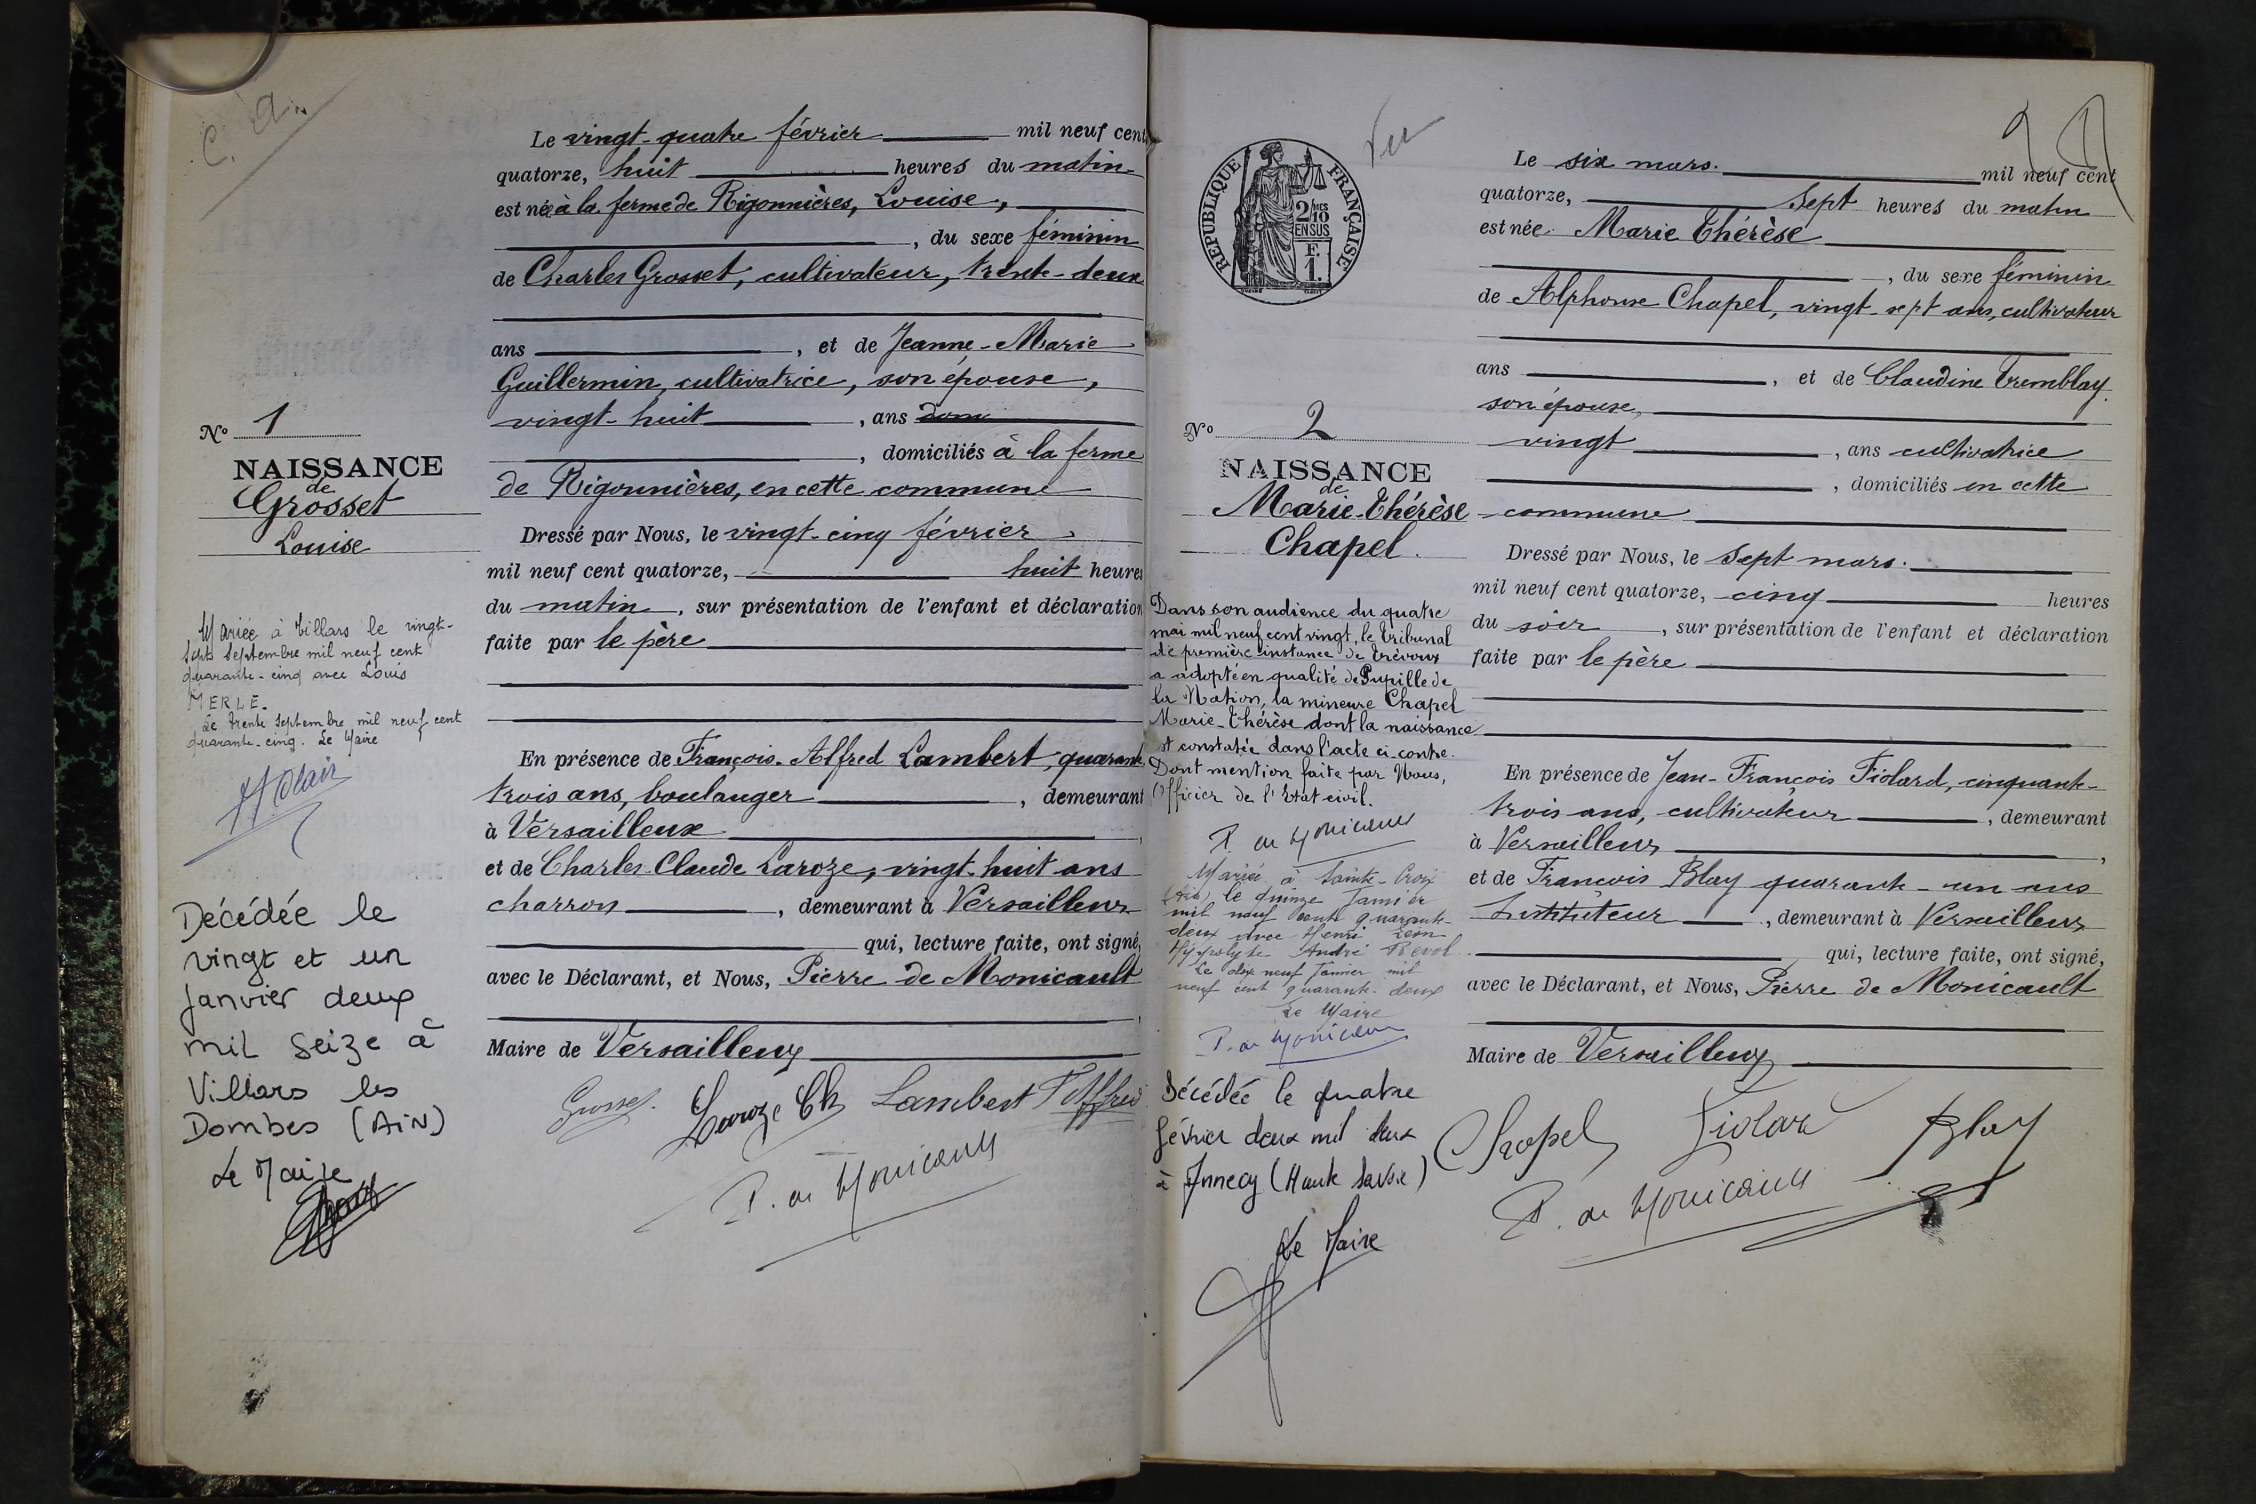 C. a.
Le vingt-quatre février mil neuf cent
quatorze, huit heures du matin
est née à la ferme de Rigonnières, Louise,
, du sexe féminin
de Charles Grosset, cultivateur, trente-deux
ans , et de Jeanne-Marie
Guillermin, cultivatrice, son épouse,
vingt-huit , ans
, domiciliés à la ferme
de Rigonnières, en cette commune
Dressé par Nous, le vingt-cinq février
mil neuf cent quatorze, huit heures
du matin , sur présentation de l'enfant et déclaration
faite par le père
En présence de François-Alfred Lambert, quarante
trois ans, boulanger , demeurant
à Versailleux
et de Charles-Claude Laroze, vingt-huit ans
charron , demeurant à Versailleux
qui, lecture faite, ont signé,
avec le Déclarant, et Nous, Pierre de Monicault
Maire de Versailleux
Grosset Laroze Ch Lambert F Alfred
P. de Monicault
No 1
NAISSANCE
de
Grosset
Louise
Mariée à Villars le vingt-
sept Septembre mil neuf cent
quarante-cinq avec Louis
MERLE.
Le trente Septembre mil neuf cent
quarante-cinq. Le Maire
Décédée le
vingt et un
Janvier deux
mil seize à
Villars les
Dombes (AIN)
Le Maire
Vu
RÉPUBLIQUE FRANÇAISE
2/10
EN SUS
F.
1.
Le six mars. mil neuf cent
quatorze, sept heures du matin
est née Marie Thérèse
, du sexe féminin
de Alphonse Chapel, vingt-sept ans, cultivateur
ans , et de Claudine Tremblay.
son épouse,
vingt , ans cultivatrice
, domiciliés en cette
commune
Dressé par Nous, le sept mars.
mil neuf cent quatorze, cinq heures
du soir , sur présentation de l'enfant et déclaration
faite par le père
En présence de Jean-François Fiolard, cinquante-
trois ans, cultivateur , demeurant
à Versailleux ,
et de François Blay quarante-un ans
Instituteur , demeurant à Versailleux
qui, lecture faite, ont signé,
avec le Déclarant, et Nous, Pierre de Monicault
Maire de Versailleux
Chapel Fiolard Blay
P. de Monicault
No 2
NAISSANCE
de
Marie-Thérèse
Chapel.
Dans son audience du quatre
mai mil neuf cent vingt, le Tribunal
de première instance de Trévoux
a adopté en qualité de Pupille de
la Nation, la mineure Chapel
Marie-Thérèse dont la naissance
est constatée dans l'acte ci-contre.
Dont mention faite par Nous,
Officier de l'Etat civil.
P. de Monicault
Mariée à Sainte-Croix
(Ain) le quinze Janvier
mil neuf cent quarante-
deux avec Henri Léon
Hyppolyte André Revol
Le dix neuf Janvier mil
neuf cent quarante-deux
Le Maire
P. de Monicault
Décédée le quatre
février deux mil deux
à Annecy (Haute Savoie)
Le Maire